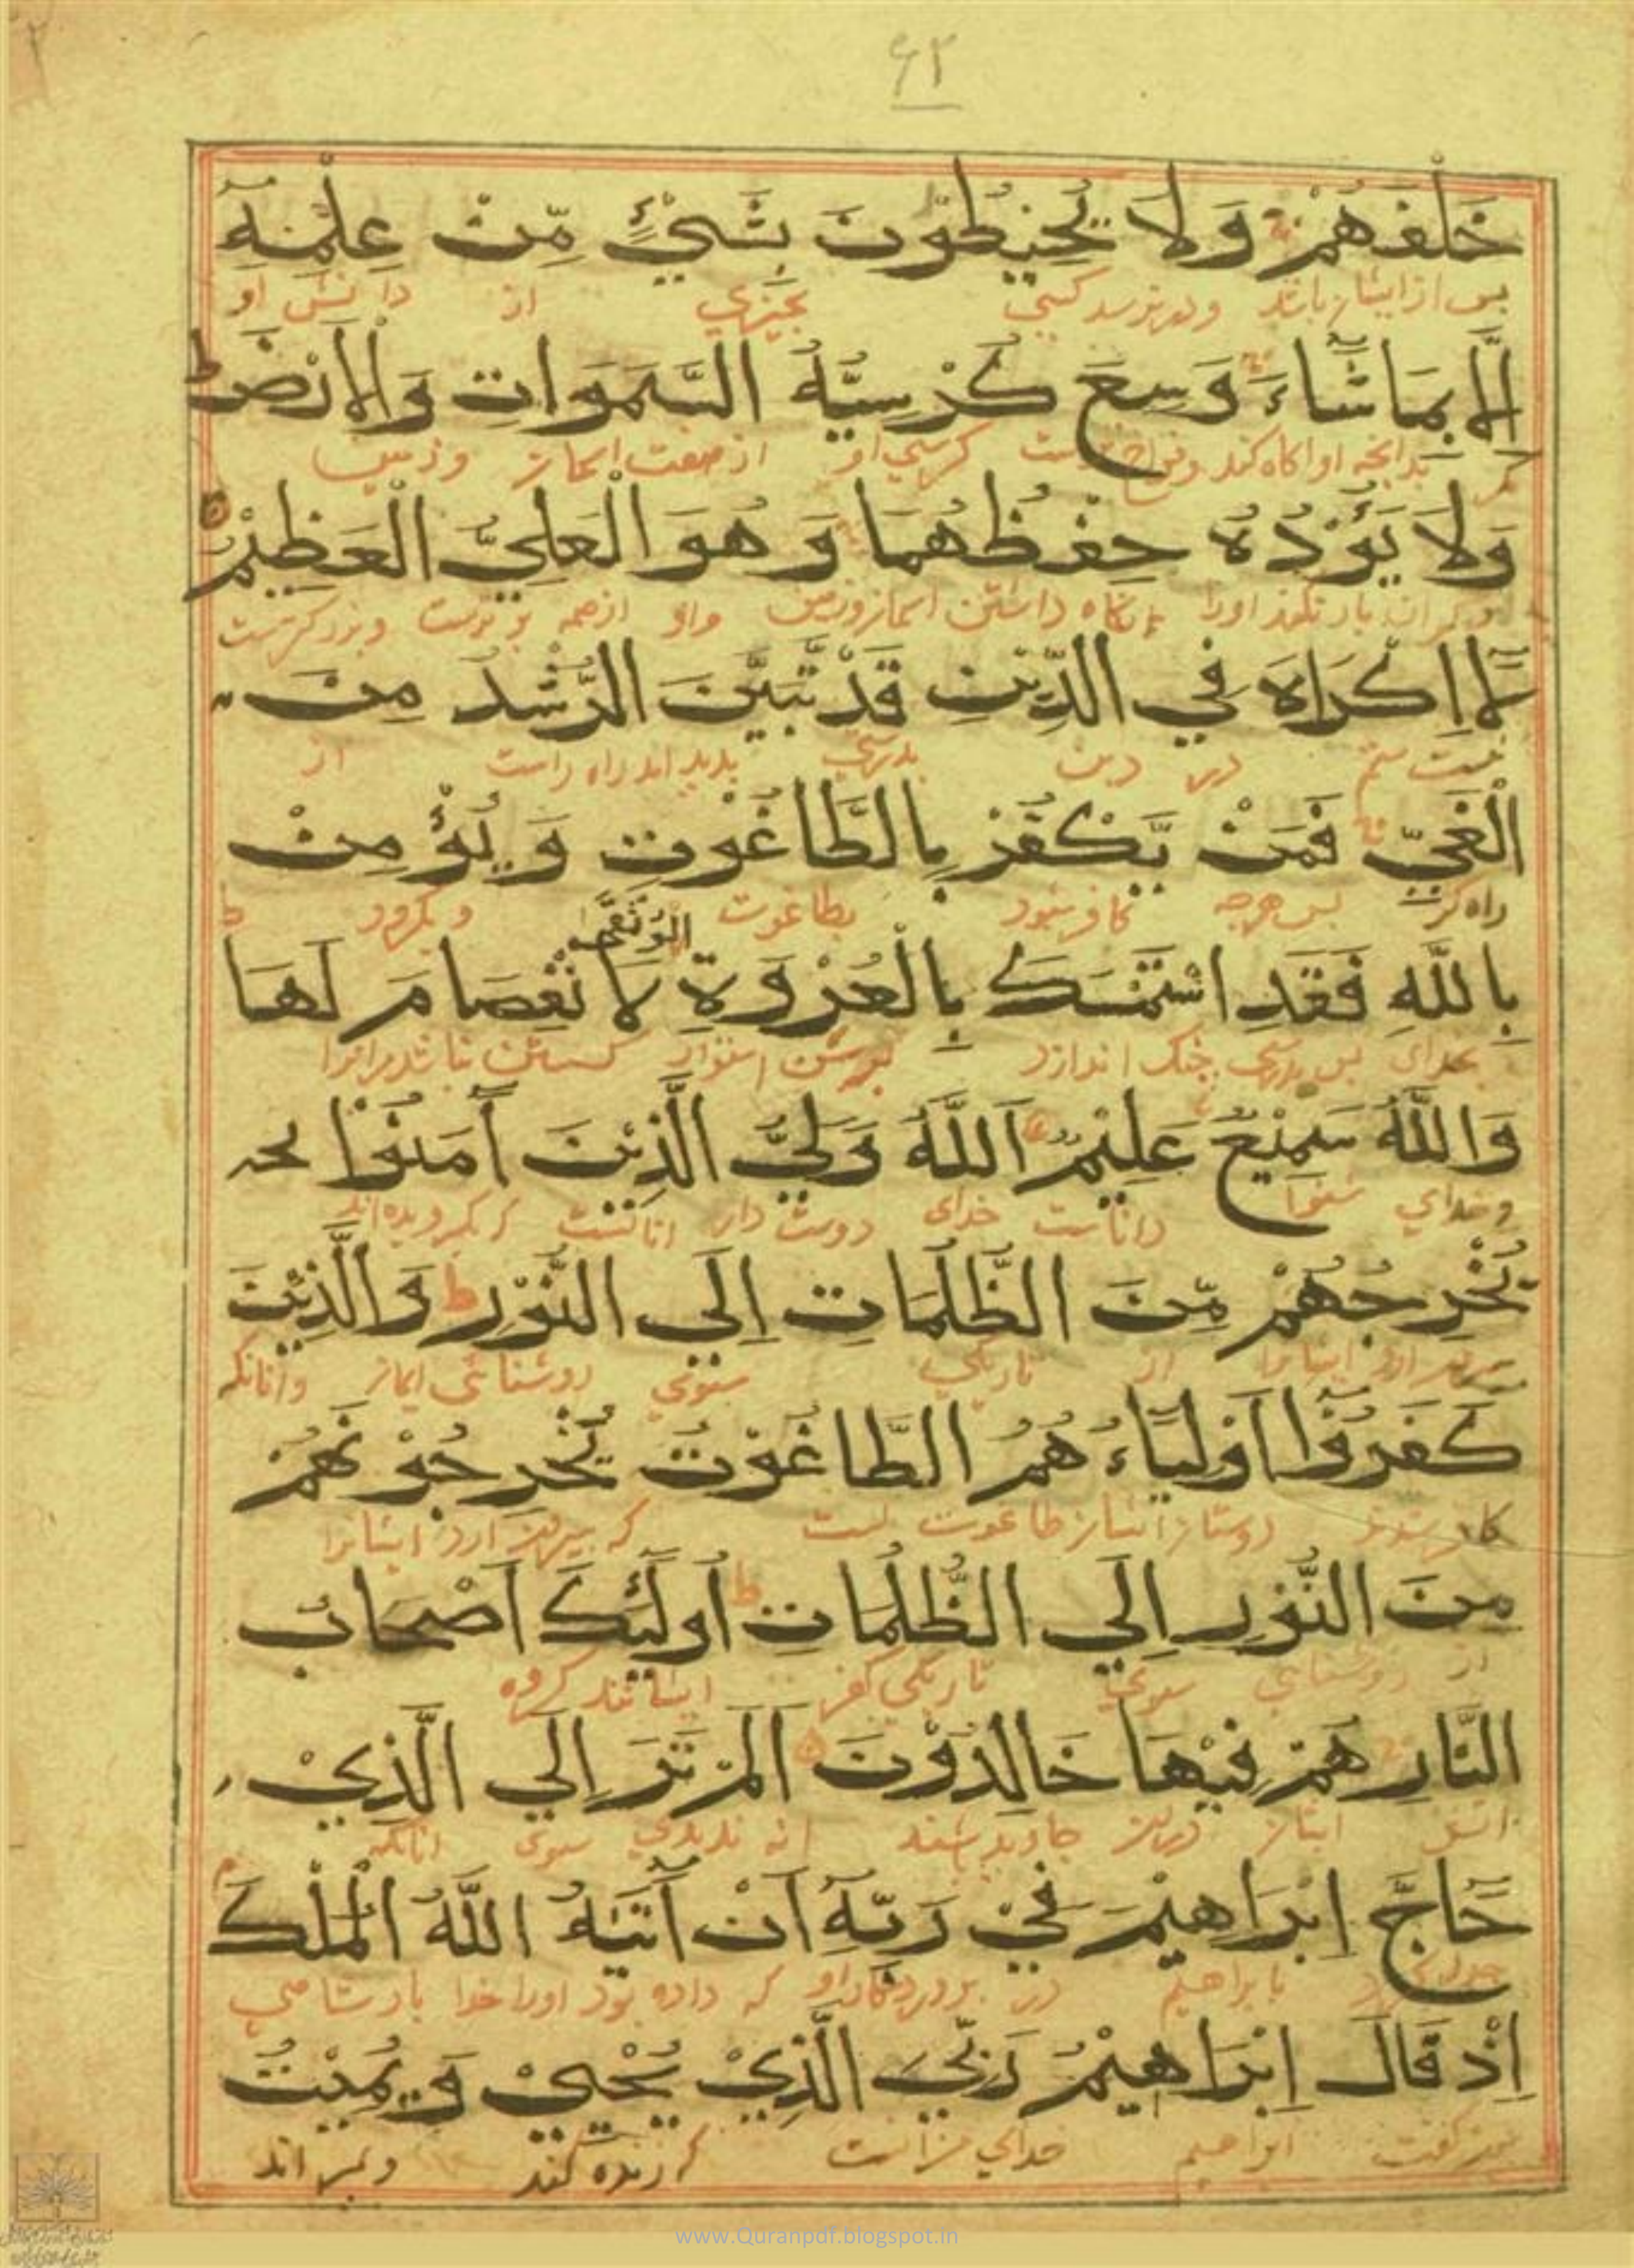 ۶۲
خَلْفَهُمْ وَلَا يُحِيْطُوْنَ بِشَيْءٍ مِّنْ عِلْمِهٖٓ
پس از ایشان باشد و در نرسد کسی بچیزی از دانش او
اِلَّا بِمَا شَآءَ وَسِعَ كُرْسِيُّهُ السَّمٰوَاتِ وَالْاَرْضَ ط
مگر بدانچه او اگاه کند کرسی او از هفت اسمان و زمین
وَلَا يَؤُدُهٗ حِفْظُهُمَا وَهُوَ الْعَلِيُّ الْعَظِيْمُ
نگاه داشتن اسمان و زمین و او از همه برترست و بزرگترست
لَآ اِكْرَاهَ فِي الدِّيْنِ قَدْ تَّبَيَّنَ الرُّشْدُ مِنَ
نیست ستم در دین بدرستی پدید امد راه راست از
الْغَيِّ فَمَنْ يَّكْفُرْ بِالطَّاغُوْتِ وَيُؤْمِنْ
راه کژ پس هرچه کافر شود بطاغوت و بگرود
الْوُثْقٰى
بِاللّٰهِ فَقَدِ اسْتَمْسَكَ بِالْعُرْوَةِ لَا انْفِصَامَ لَهَا ط
بخدای پس بدرستی چنگ اندازد استوار گسستن نباشد مرانرا
وَاللّٰهُ سَمِيْعٌ عَلِيْمٌ اَللّٰهُ وَلِيُّ الَّذِيْنَ آمَنُوْا يخر
و خدای شنوا داناست خدای دوست دار انانست که بگرویده اند
يُخْرِجُهُمْ مِّنَ الظُّلُمَاتِ اِلَى النُّوْرِ ط وَالَّذِيْنَ
بیرون ارد ایشانرا از تاریکی سوی روشنائی ایمان وانانکه
كَفَرُوْٓا اَوْلِيَآءُ هُمُ الطَّاغُوْتُ يُخْرِجُوْنَهُمْ
کافر شدند دوستان ایشان طاغوت است که بیرون ارد ایشانرا
مِنَ النُّوْرِ اِلَى الظُّلُمَاتِ ط اُولٰٓئِكَ اَصْحَابُ
از روشنایی سوی تاریکی کفر ایشانند گروه
النَّارِ هُمْ فِيْهَا خَالِدُوْنَ اَلَمْ تَرَ اِلَى الَّذِيْ
اتش ایشان دران جاوید باشند نه ندیدی سوی انانکه
حَآجَّ اِبْرَاهِيْمَ فِيْ رَبِّهٖٓ اَنْ آتٰىهُ اللّٰهُ الْمُلْكَ م
با براهیم در پروردگار او که داده بود اورا خدا پادشاهی
اِذْ قَالَ اِبْرَاهِيْمُ رَبِّيَ الَّذِيْ يُحْيِيْ وَيُمِيْتُ
چون گفت ابراهیم خدای من انست که زنده کند و بمیراند
www.Quranpdf.blogspot.in